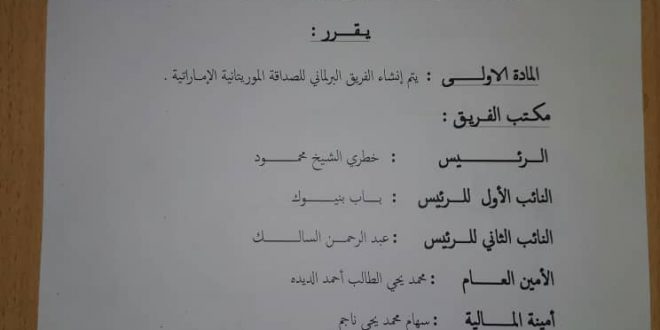 يـقـــرر :
المادة الاولـــى : يتم إنشاء الفريق البرلماني للصداقة الموريتانية الإماراتية .
مكـتب الفريق :
الـرئـــــيس : خطري الشيخ محمـــود
النائب الأول للــرئيس : بــاب بنيــوك
النائب الثاني للــرئيس : عبد الرحمن السالــك
الأمين العــام : محمد يحي الطالب أحمد الديده
أمينة المــالية : سهام محمد يحي ناجم